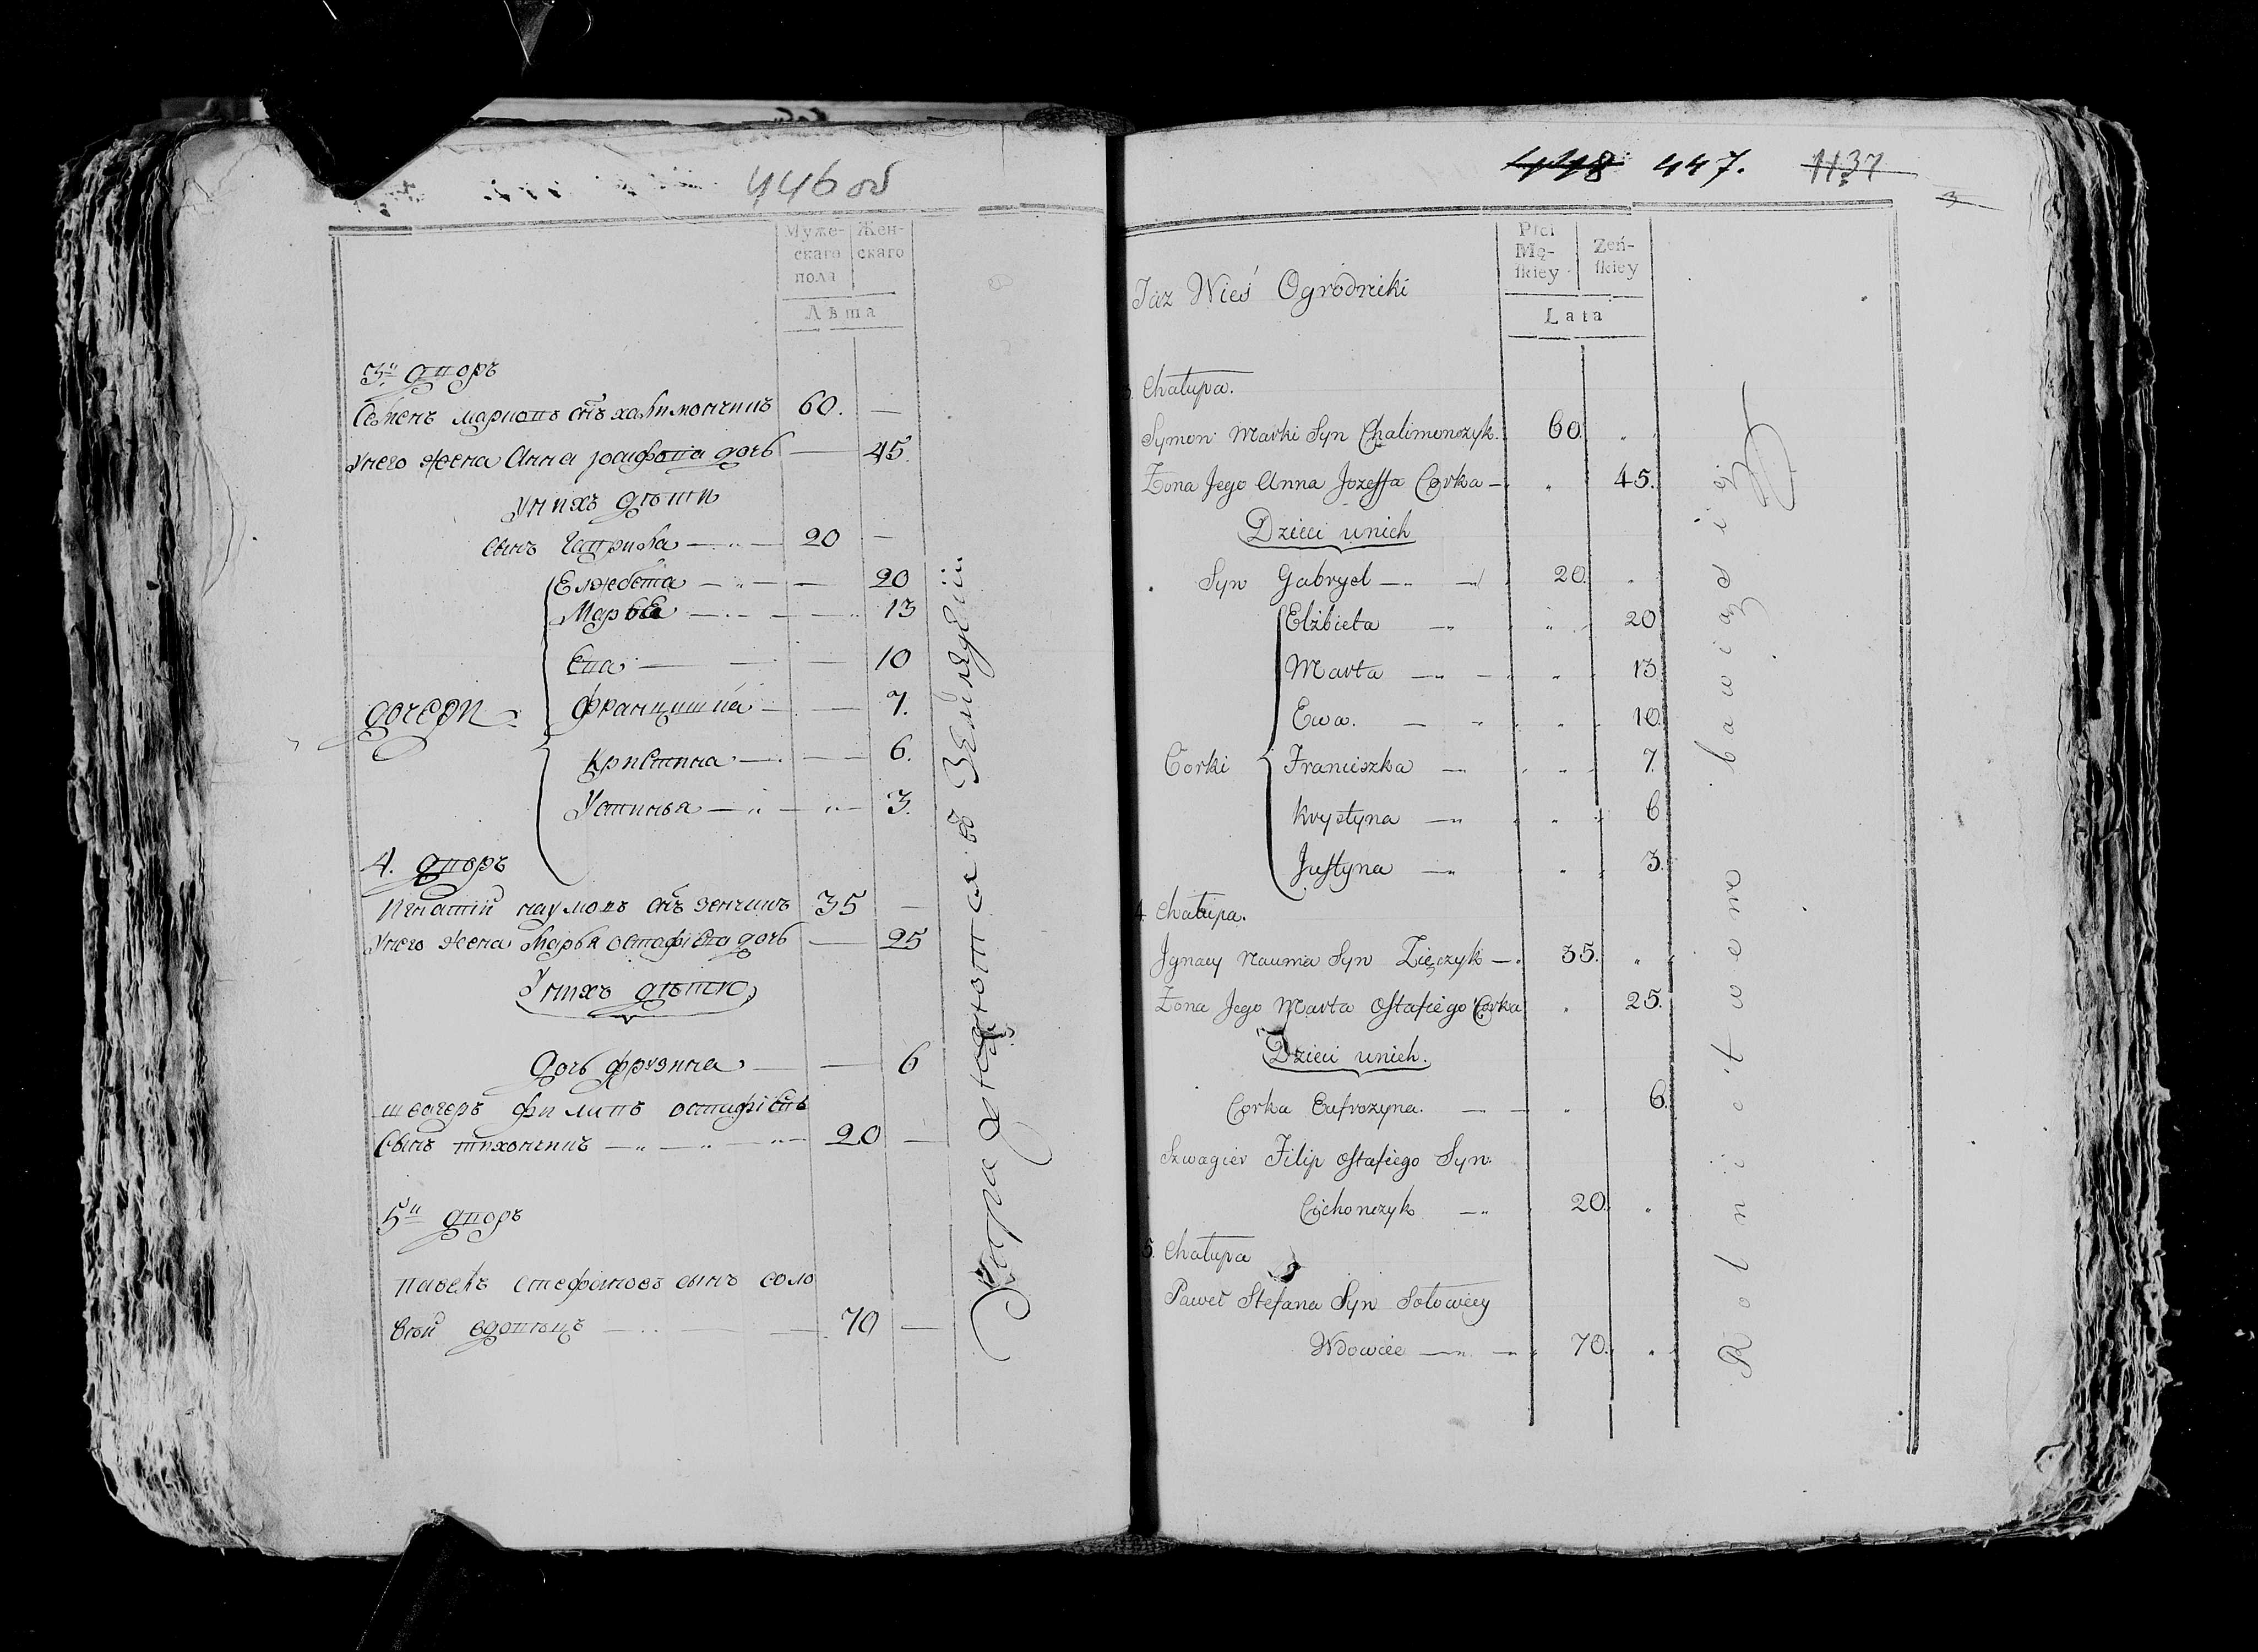 446 об
Муже-
скаго
пола
Жен-
скаго
Лѣта
3й дворъ
Семенъ марковъ снъ халимончикъ 60. —
Унего жена Анна — дочь — 45.
Унихъ дѣти
сынъ Гаврила — 20 —
Елжбета — 20
Марья — 13
Ева — 10
дочери
францишка — 7.
Кристина — 6.
Устинья — 3.
4. дворъ
Игнатiй наумовъ снъ зенчикъ 35 —
Унего жена Марья остафiева дочь — 25
Унихъ дѣти
Дочь фрузина — 6
швагеръ филипъ остафiевъ
Сынъ тихончикъ — 20 —
5й дворъ
павелъ стефановъ сынъ соло
вѣй вдовецъ — 70 —
448 447. 1137
3
Płci
Mę-
ſkiey
Zeń-
ſkiey
Lata
Taz Wieś Ogrodniki
3. Chałupa.
Symon Marki Syn Chalimonczyk. 60. "
Zona Jego Anna Jozeffa Corka — " 45.
Dzieci unich
Syn Gabryel — 20. "
Elżbieta — " 20
Marta — " 13
Ewa. — " 10.
Corki
Franciszka — " 7.
Krystyna — " 6
Justyna — " 3.
4. Chałupa.
Jgnacy Nauma Syn Zięczyk — 35. "
Zona Jego Marta Ostafiego Corka " 25.
Dzieci unich.
Corka Eufrozyna. — " 6.
Szwagier Filip Ostafiego Syn.
Cichonczyk — 20. "
5. Chałupa
Paweł Stefana Syn Sołowiey
Wdowiec — 70. "
Rolnictwem bawią się